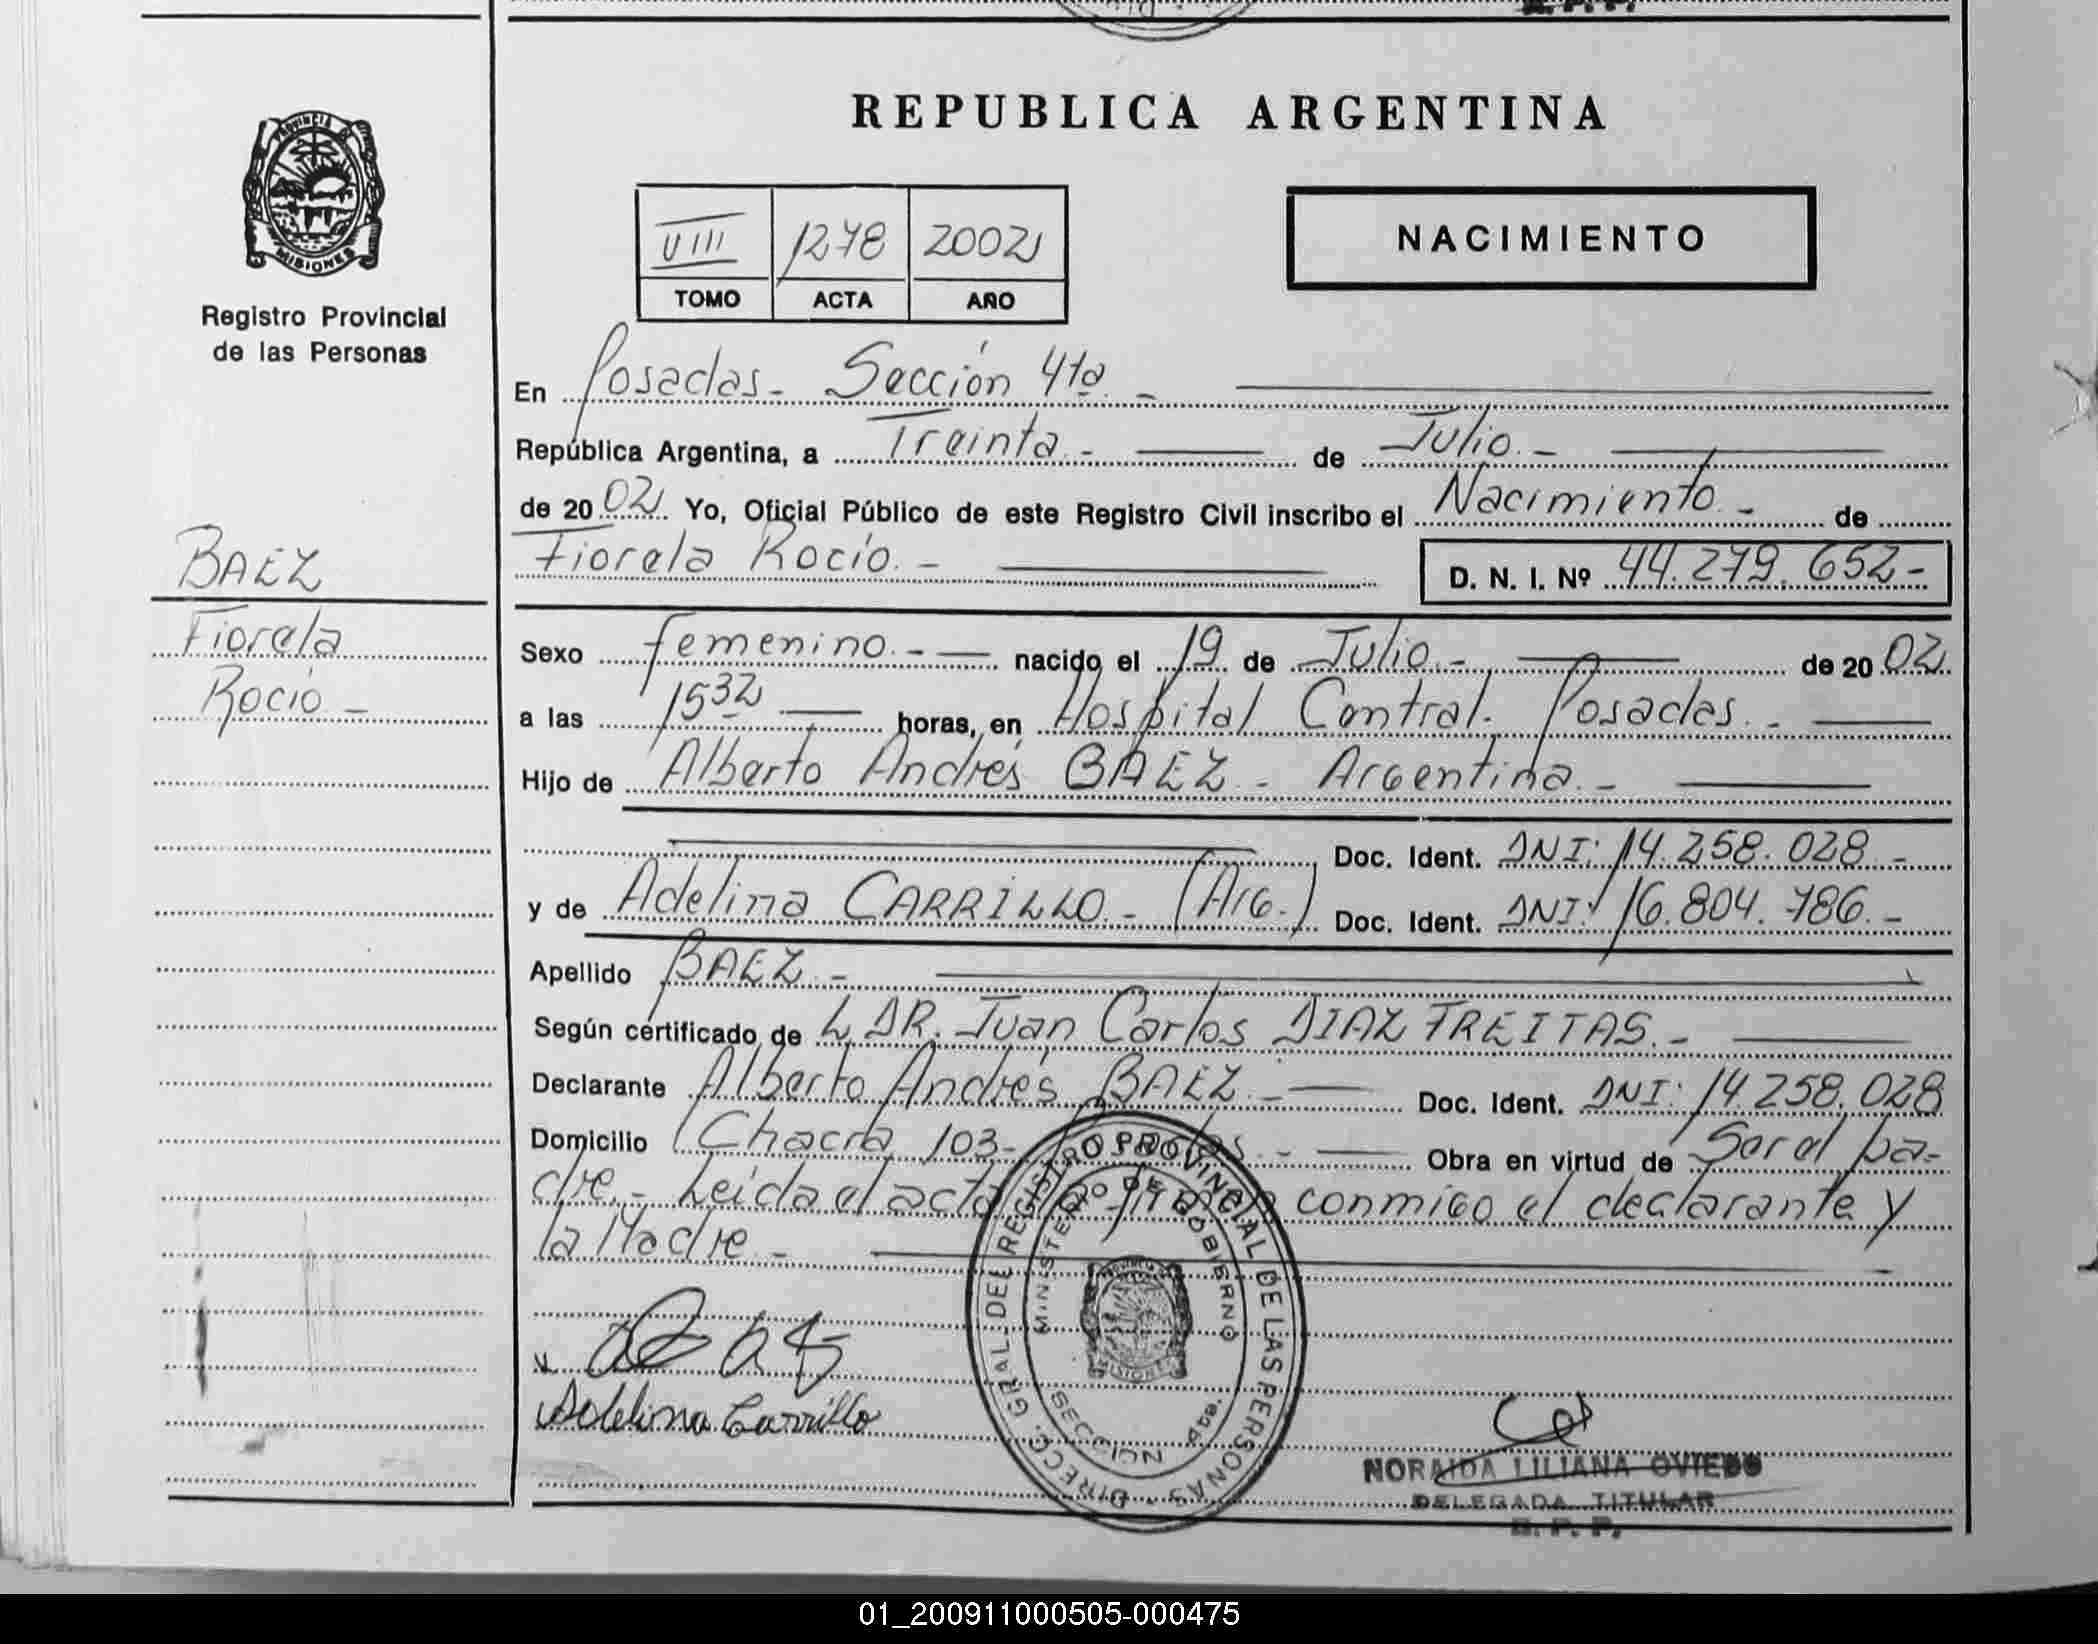 REPUBLICA ARGENTINA
PROVINCIA DE
MISIONES
Registro Provincial
de las Personas
VIII 1278 2002
TOMO ACTA AÑO
NACIMIENTO
En Posadas - Sección 4ta. -
República Argentina, a Treinta. - de Julio. -
de 2002 Yo, Oficial Público de este Registro Civil inscribo el Nacimiento. - de
Fiorela Rocío. - D. N. I. Nº 44.279.652-
BAEZ
Fiorela
Rocío -
Sexo femenino. - nacido el 19 de Julio. - de 2002
a las 1532 horas, en Hospital Central. Posadas. -
Hijo de Alberto Andrés BAEZ - Argentina. -
Doc. Ident. DNI: 14.258.028 -
y de Adelina CARRILLO. - (Arg.) Doc. Ident. DNI: 16.804.786. -
Apellido BAEZ -
Según certificado de L DR. Juan Carlos DIAZ FREITAS. -
Declarante Alberto Andrés BAEZ. - Doc. Ident. DNI: 14 258.028
Domicilio Chacra 103- Obra en virtud de Ser el pa-
dre. - Leída el acta conmigo el declarante y
la Madre -
Adelina Carrillo
DIRECC. GRAL. DEL REGISTRO PROVINCIAL DE LAS PERSONAS -
MINISTERIO DE GOBIERNO
SECCION 4ta.
NORAIDA LILIANA OVIEDO
DELEGADA TITULAR
R. P. P.
01_200911000505-000475